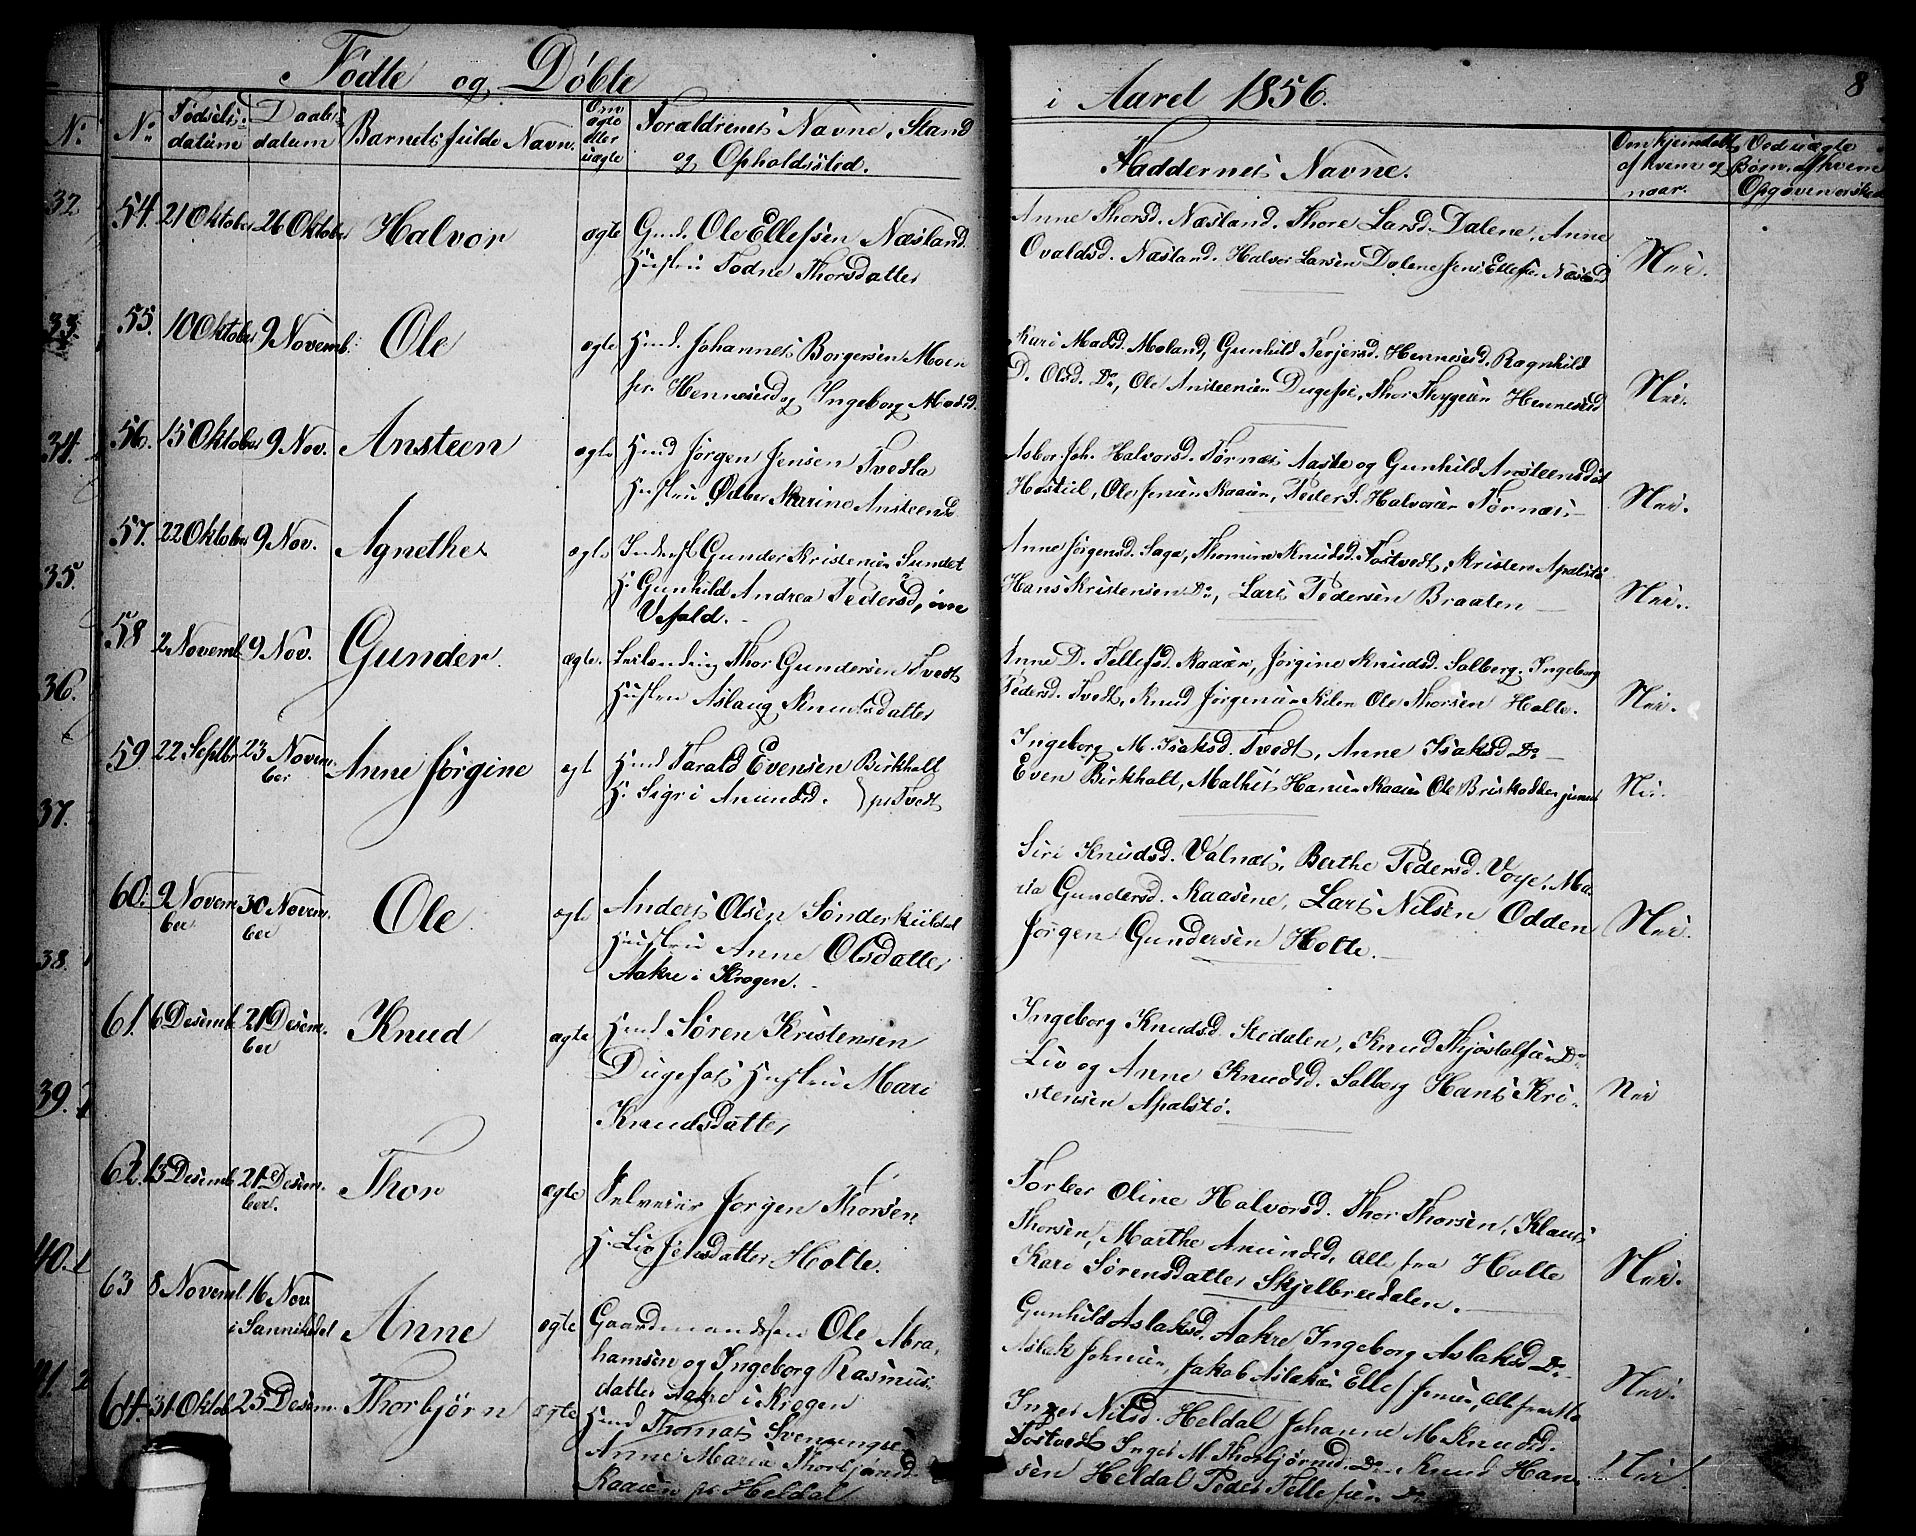 Födte og Döbte
i Aaret 1856.
8
No
No
Födsels-
datum
Daabs-
datum
Barnets fulde Navn.
Om
ægte
eller
uægte
Forældrenes Navne, Stand
og Opholdssted.
Faddernes Navne.
Om hjemdöbt
af hvem og
naar.
Ved uægte
Börn, af hvem
Opgaven er skeet
32.
33.
34.
35.
36.
37.
38.
39.
40.
41.
54. 21 Oktober 26 Oktober Halvor ægte
Ole Ellefsen Næsland
Hustru Todne Thorsdatter
Anne Thorsd. Næsland. Thore Larsd. Dalene, Anne
Ovaldsd. Næsland. Halvor Larsen Dalene Jens Ellefsen Næsland
Nei.
55. 10 Oktober 9 Novemb. Ole ægte
Johannes Borgersen Moen
Henneseid og Ingeborg Madsd.
Kari Madsd. Moland, Gunhild Terjersd. Henneseid. Ragnhild
D. Olsd. Do, Ole Ansteensen Dugefos, Thor Thygesen Henneseid
Nei.
56. 15 Oktober 9 Nov. Ansteen ægte
Jörgen Jensen Tvedta
Hustru Marine Ansteensd
Halvorsd. Törnæs Aaste og Gunhild Ansteensdat
Ole Jensen Kaasen, Peder S. Halvorsen Törnæs.
Nei.
57. 22 Oktober 9 Nov. Agnethe ægte
Gunder Kristensen Sundet
H. Gunhild Andrea Pedersd,
Vefald.
Anne Jörgensd. Saga, Thomine Knudsd. Tostvedt, Kristen Apalstö
Hans Kristensen Do, Lars Pedersen Braaten
Nei.
58 2 Novemb. 9 Nov. Gunder. ægte.
Thor Gundersen Tvedt
Hustru Aslaug Knudsdatter
Anne D. Tellefsd. Kaasen, Jörgine Knudsd. Solberg, Ingeborg
Pedersd. Tvedt, Knud Jörgensen Kilen Ole Thorsen Holte.
Nei.
59 22 Septbr. 23 Novem-
ber
Anne Jörgine ægt
Tarald Evensen Birkhalt
H. Sigri Amundsd. Tvedt
Ingeborg M. Isaksd. Tvedt, Anne Isaksd Do
Even Birkhalt, Mathis Hansen Kaasen Ole
Nei.
60. 9 Novem-
ber
30 Novem-
ber
Ole ægte
Anders Olsen
Hustru Anne Olsdatter
Aakre i Krogen.
Siri Knudsd. Valnæs, Berthe Pedersd. Voje, Ma-
ria Gundersd. Kaasene, Lars Nilsen Odden
Jörgen Gundersen Holte.
Nei.
61. 6 Desemb. 21 Desem-
ber
Knud ægte
Sören Kristensen
Dugefos Hustru Mari
Knudsdatter
Ingeborg Knudsd. Stidalen, Knud Thjöstolfsen Do
Liv og Anne Knudsd. Solberg Hans Kri-
stensen Apalstö.
Nei
62. 13 Desemb. 21 Desem-
ber.
Thor ægte
Selveier Jörgen Thorsen
H. Liv Jensdatter Holte.
Torber Oline Halvorsd. Thor Thorsen, Klaus
Thorsen, Marthe Amundsd, alle fra Holte
Kari Sörensdatter Skjelbredalen.
Nei.
63 8 Novemb. 16 Nov
i Sannikedal
Anne ægte
Gaardmand Ole Abra-
hamsen og Ingeborg Rasmus-
datter Aakre i Krogen
Gunhild Aslaksd. Aakre Ingeborg Aslaksd Do
Aslak Johnsen, Jakob Aslaksen
Nei.
64. 31 Oktob. 25 Desem. Thorbjörn ægte
Thomas Svenungsen
Anne Maria Thorbjörnsd.
Kaasen Heldal
Inger Nilsd. Heldal Johanne M. Knudsd.
Tostvedt Inger M. Thorbjörnsd. Do Knud Han-
sen Heldal Peder Tellefsen Do
Nei